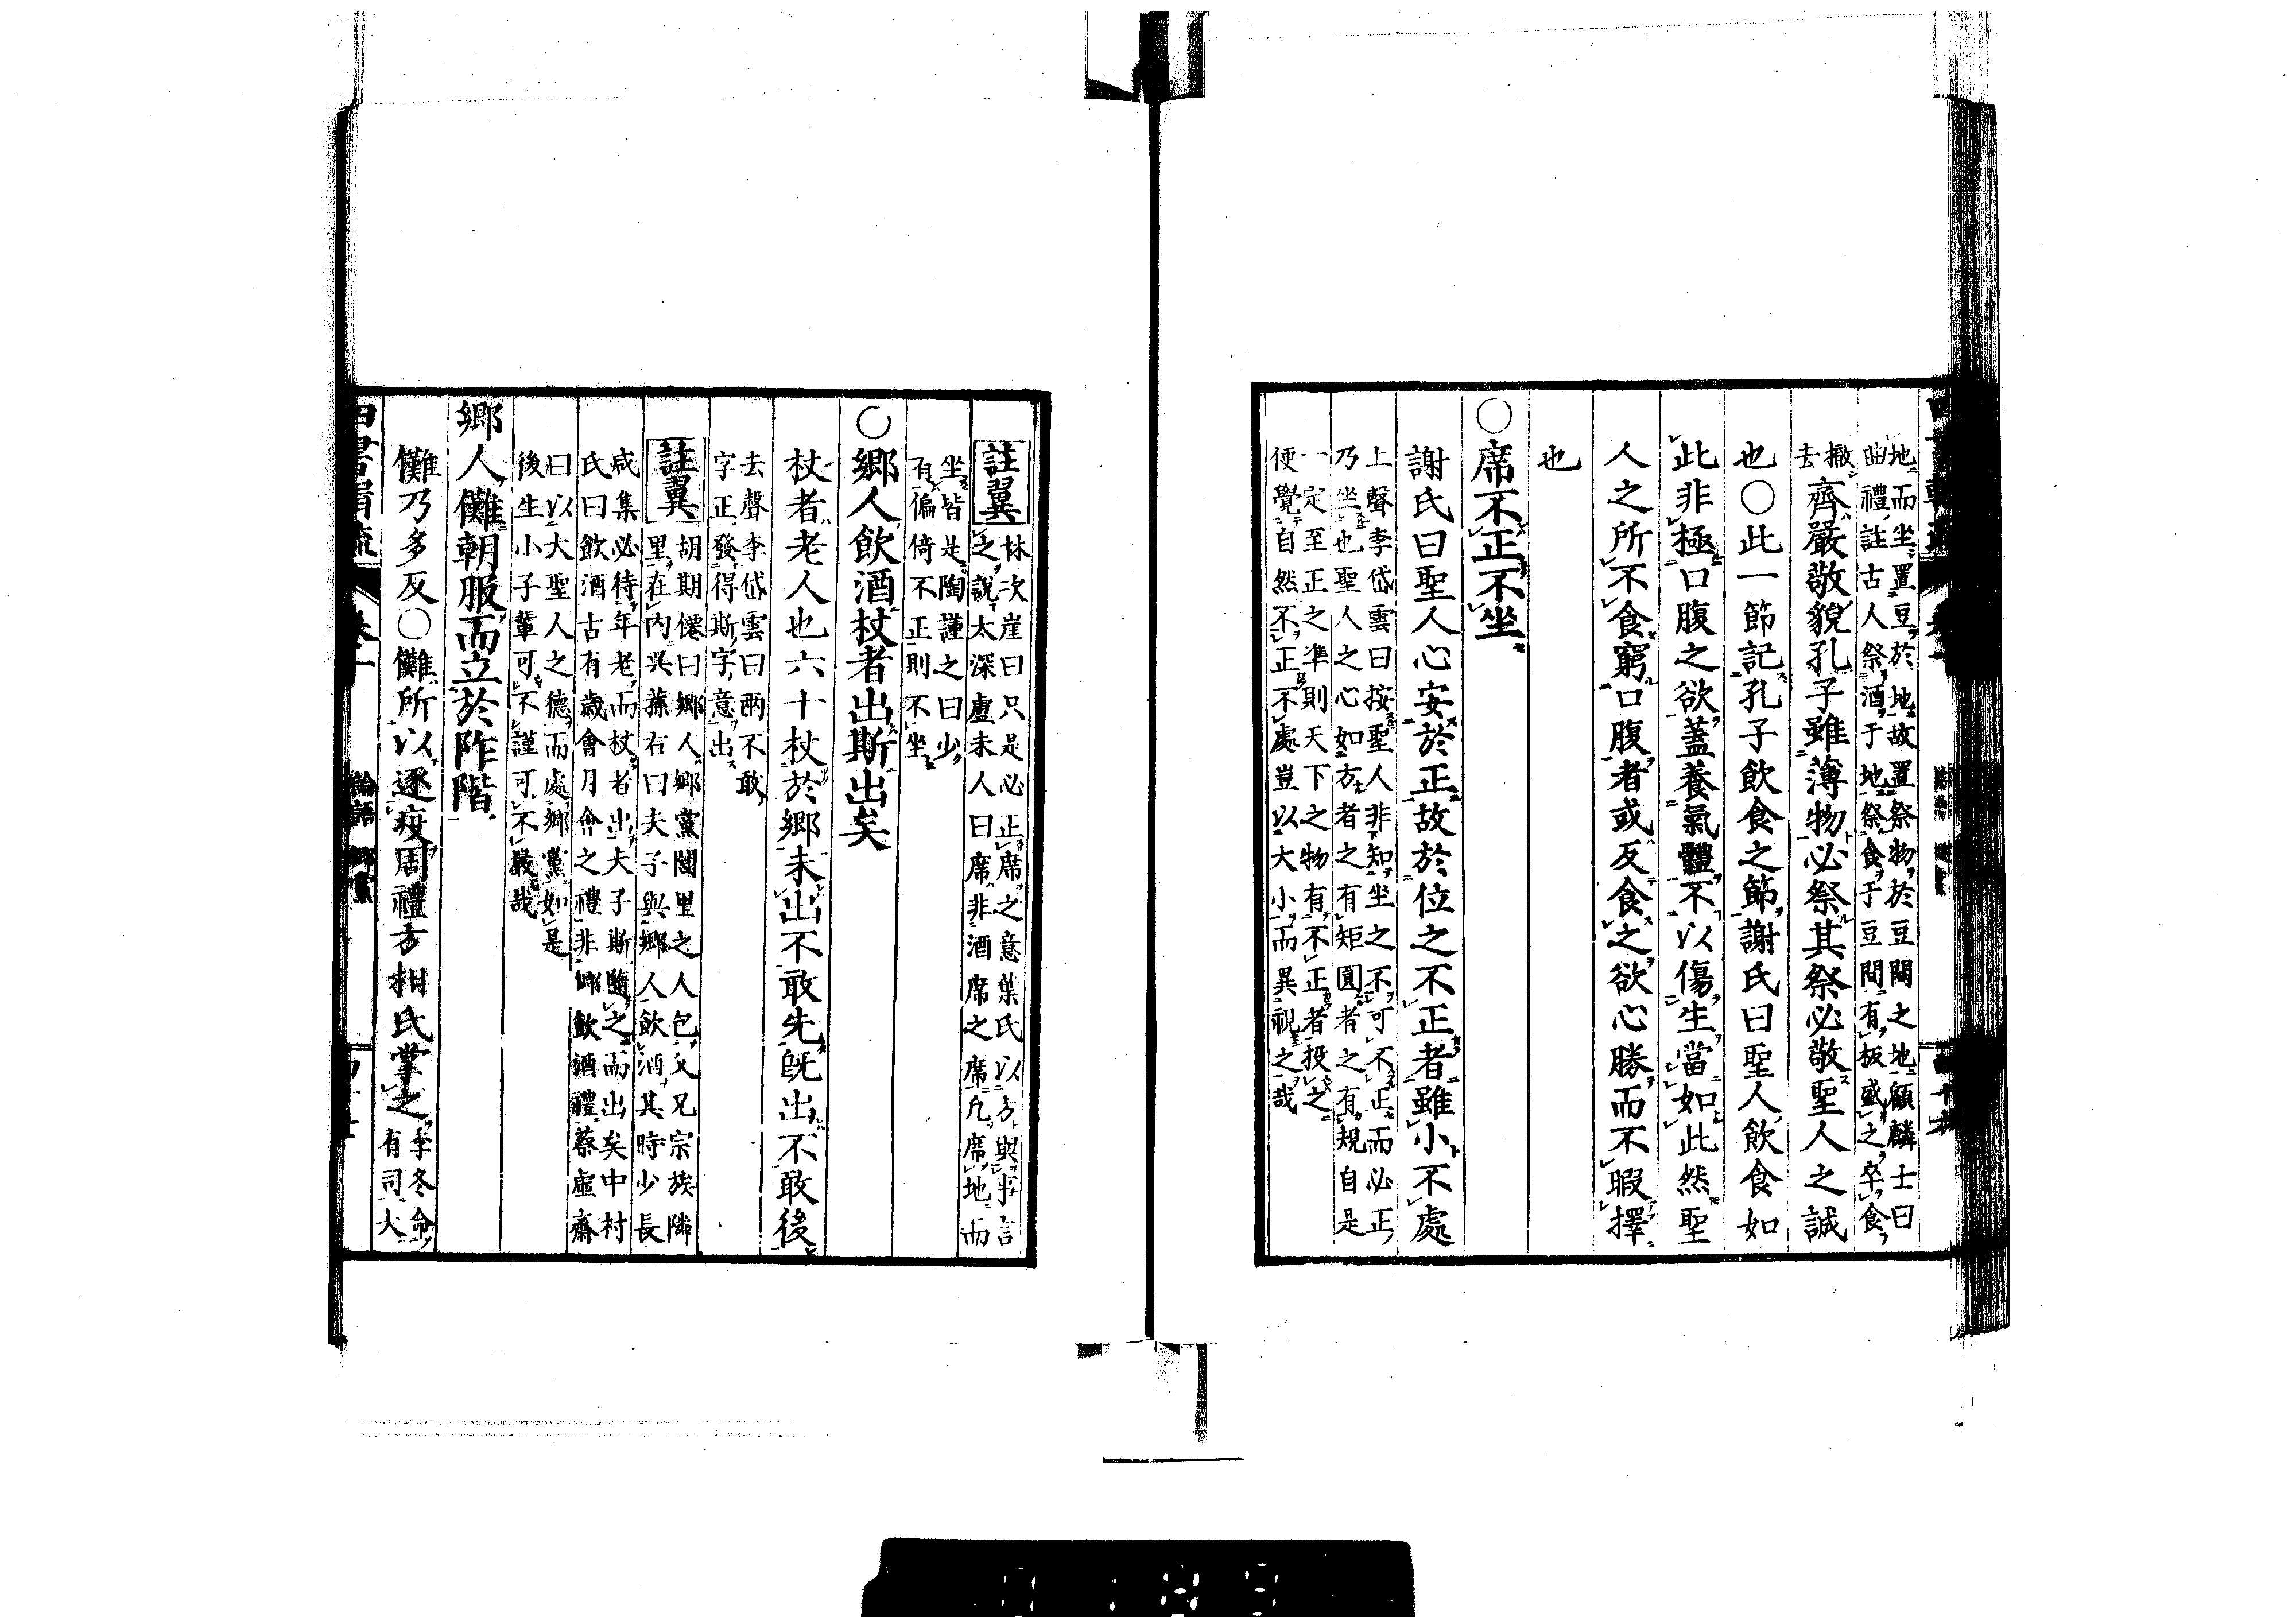 地而坐置豆於地故置祭物於豆間之地顧麟士曰
曲禮註古人祭酒于地祭食于豆間有板盛之卒食
撤
去
齊嚴敬貌孔子雖薄物必祭其祭必敬聖人之誠
也〇此一節記孔子飲食之節謝氏曰聖人飲食如
此非極口腹之欲蓋養氣體不以傷生當如此然聖
人之所不食窮口腹者或反食之欲心勝而不暇擇
也
〇席不正不坐
謝氏曰聖人心安於正故於位之不正者雖小不處
上聲李岱雲曰按聖人非知坐之不可不正而必正
乃坐也聖人之心如方者之有矩圓者之有規自是
一定至正之準則天下之物有不正者投之
便覺自然不正不處豈以大小而異視之哉
註翼
林次崖曰只是必正席之意葉氏以方與事言
之說太深盧未人曰席非酒席之席凡席地而
坐皆是陶謹之曰少
有偏倚不正則不坐
〇鄉人飲酒杖者出斯出矣
杖者老人也六十杖於鄉未出不敢先既出不敢後
去聲李岱雲曰兩不敢
字正發得斯字意出
註翼
胡期僊曰鄉人鄉黨閭里之人包父兄宗族隣
里在內吳蓀右曰夫子與鄉人飲酒其時少長
咸集必待年老而杖者出夫子斯隨之而出矣中村
氏曰飲酒古有歲會月會之禮非鄉飲酒禮蔡虛齋
曰以大聖人之德而處鄉黨如是
後生小子輩可不謹可不嚴哉
鄉人儺朝服而立於阼階
儺乃多反〇儺所以逐疫周禮方相氏掌之
季冬命
有司大
論語